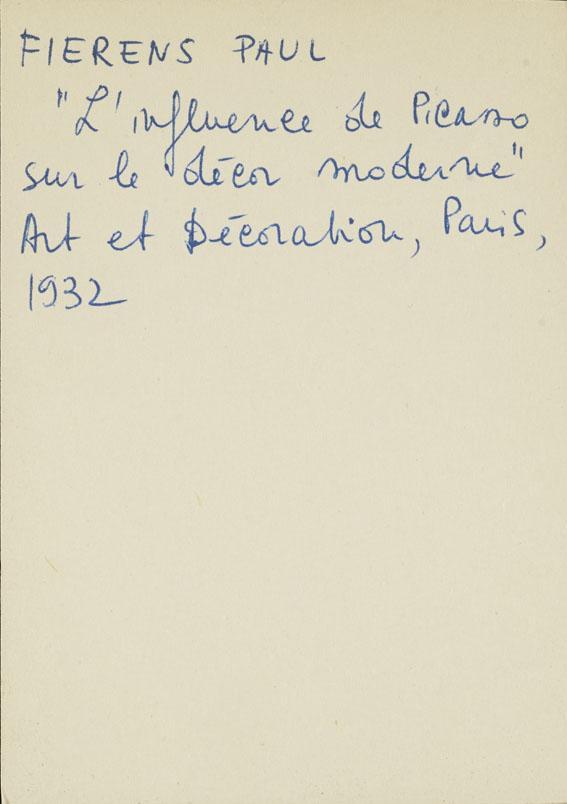 FIERENS PAUL
"L'influence de Picasso
sur le décor moderne"
Art et Décoration, Paris,
1932